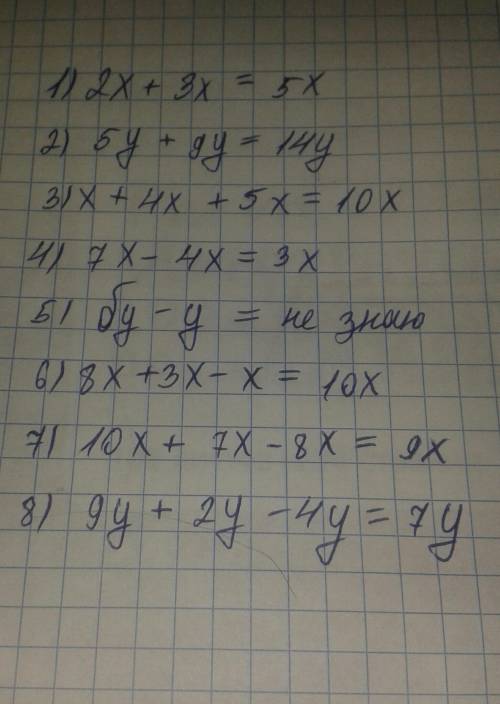 1) 2x + 3x = 5x
2) 5y + 9y = 14y
3) x + 4x + 5x = 10x
4) 7x - 4x = 3x
5) 6y - y = не знаю
6) 8x + 3x - x = 10x
7) 10x + 7x - 8x = 9x
8) 9y + 2y - 4y = 7y